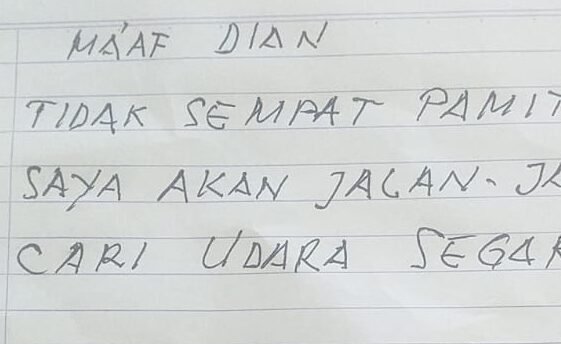 MA'AF DIAN
TIDAK SEMPAT PAMIT
SAYA AKAN JALAN-JA
CARI UDARA SEGAR